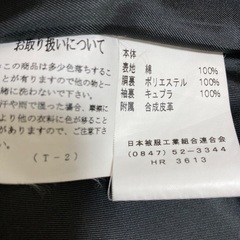 お取り扱いについて
この商品は多少色落ちする
とが有りますので他の物と一
に洗わないで
汗や雨で湿った場合、摩擦に
より他の衣料に色が移ること
が有りますので、ご注意下さ
い。
(T-2)
本体
表地 綿 100%
胴裏 ポリエステル 100%
袖裏 キュプラ 100%
附属 合成皮革
日本被服工業組合連合会
(0847) 52-3344
HR 3613